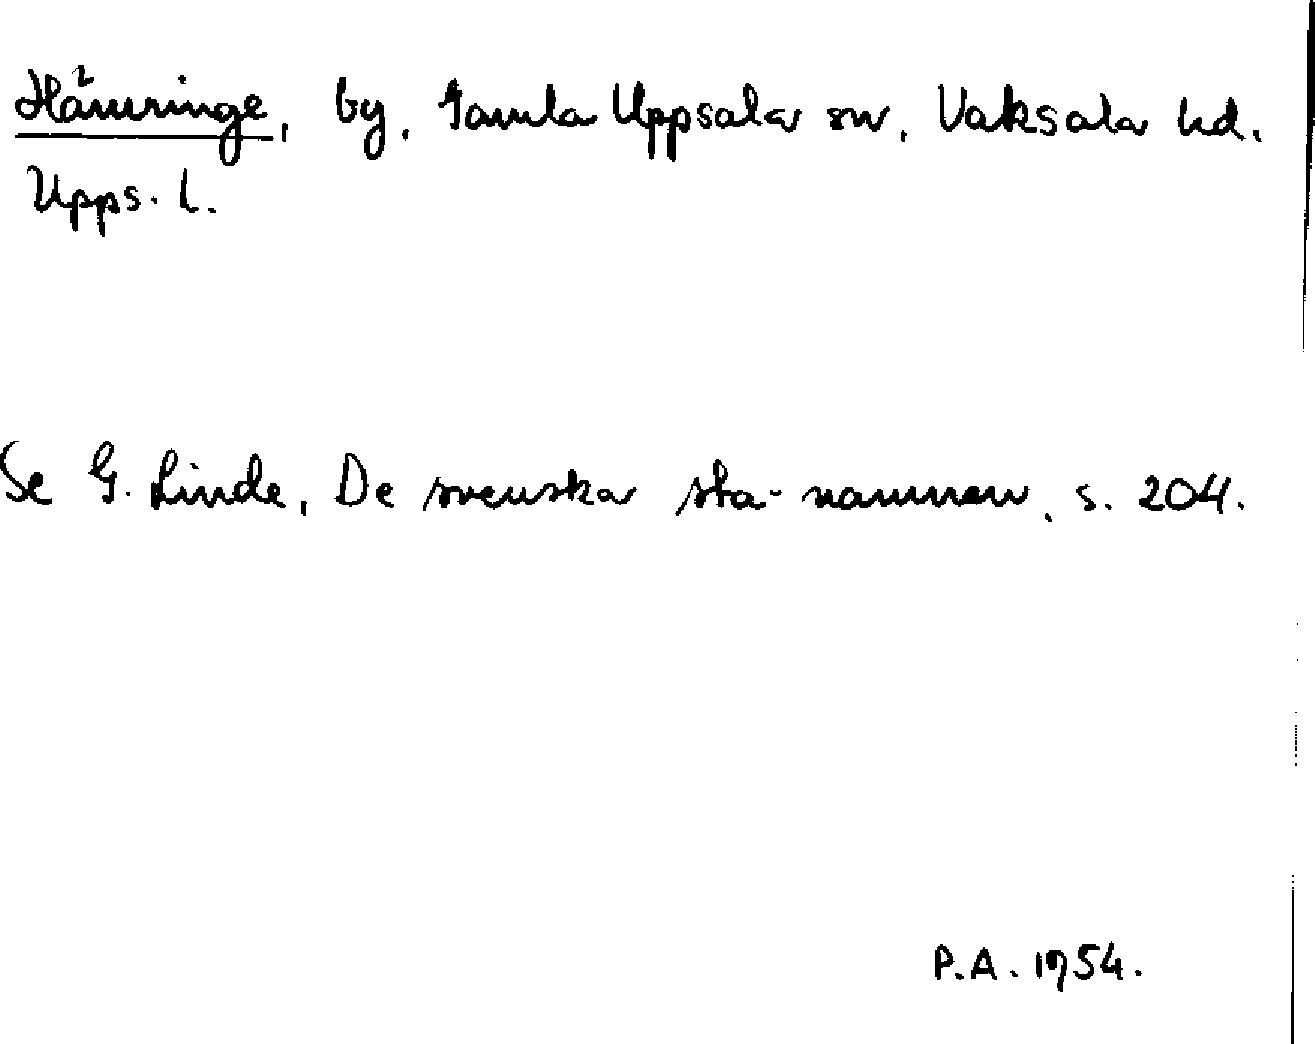 Hämringe, by, Gamla Uppsala sn, Vaksala hd.
Upps. l.
Se G. Linde, De svenska sta-namnen, s. 204.
P.A. 1954.